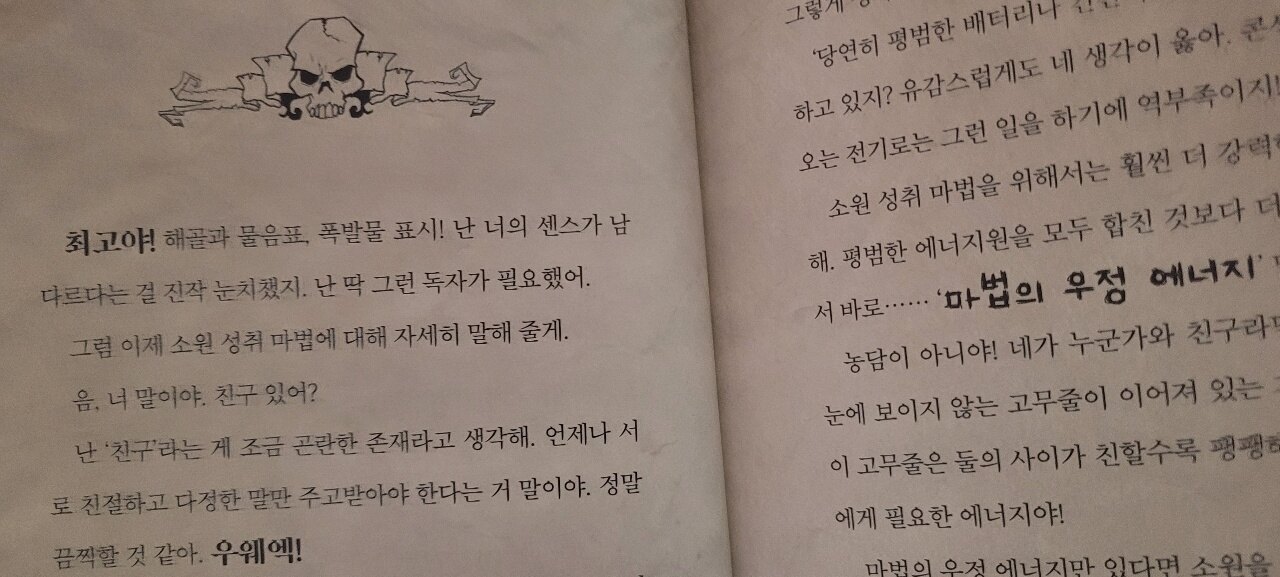 최고야! 해골과 물음표, 폭발물 표시! 난 너의 센스가 남
다르다는 걸 진작 눈치챘지. 난 딱 그런 독자가 필요했어.
그럼 이제 소원 성취 마법에 대해 자세히 말해 줄게.
음, 너 말이야. 친구 있어?
난 ‘친구’라는 게 조금 곤란한 존재라고 생각해. 언제나 서
로 친절하고 다정한 말만 주고받아야 한다는 거 말이야. 정말
끔찍할 것 같아. 우웨엑!
그렇게
‘당연히 평범한 배터리나
하고 있지? 유감스럽게도 네 생각이 옳아.
오는 전기로는 그런 일을 하기에 역부족이지!
소원 성취 마법을 위해서는 훨씬 더
해. 평범한 에너지원을 모두 합친 것보다 더
서 바로…… ‘마법의 우정 에너지’
농담이 아니야! 네가 누군가와
눈에 보이지 않는 고무줄이 이어져 있는
이 고무줄은 둘의 사이가 친할수록
에게 필요한 에너지야!
마법의 우정 에너지만 있다면 소원을